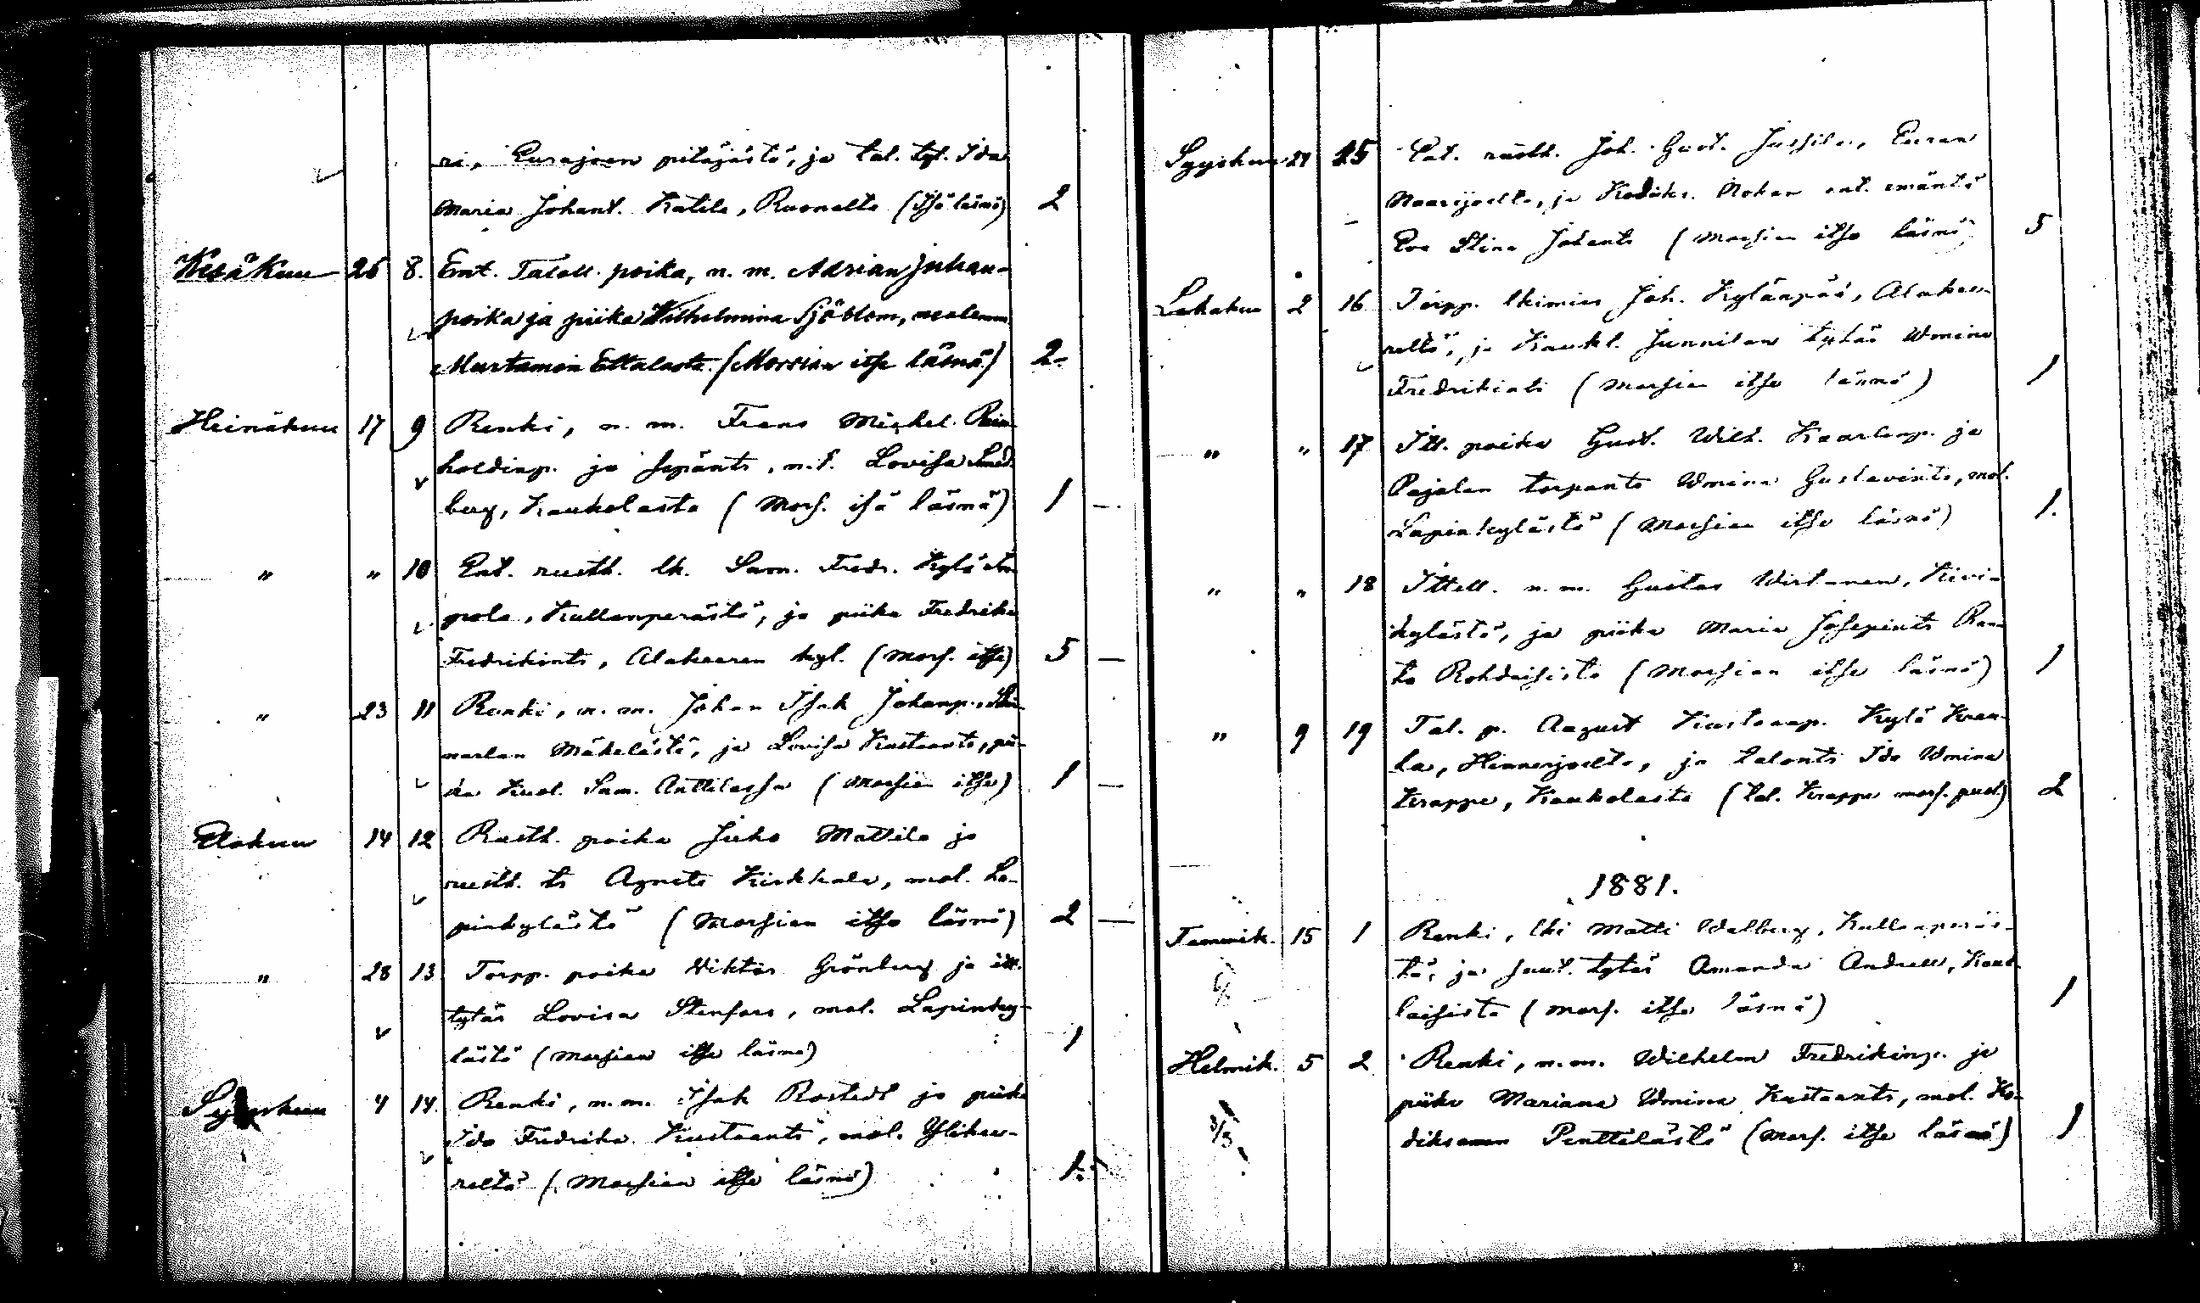 ri, Eurajoen pitäjästä, ja tal. tyt. Ida
Maria Johant. Katila, Ruonalta (Isä läsnä) 2
Kesäkuu 26 8. Ent. Taloll. poika, n. m. Adrian Juhan-
poika ja piika Wilhelmina Sjöblom, molemm.
Murtamon Ettalasta. (Morsian itse läsnä) 2-
Heinäkuu 17 9 Renki, n. m. Frans Mickel Rein-
holdinp. ja sepänts, n. t. Lovisa Lind-
berg, Kaukolasta (Mors. isä läsnä) 1 -
" " 10 Ent. rusth. lk. Sam. Fredr. Kylä
pola, Kullanperästä, ja piika Fredrika
Fredrikints, Alakeeren kyl. (mors. itse) 5 -
" 23 11 Renki, n. m. Johan Isak Johanp.
Mäkelästä, ja Lovisa Kustaants, pii-
ka Kuol. Sam. Anttilassa (Morsian itse) 1 -
Elokuu 14 12 Rusth. poika Juho Mattila ja
rusth. ts Agneta Kirkkala, mol. La-
pinkylästä (Morsian itse läsnä) 2 -
" 28 13 Torpp. poika Viktor Grönberg ja itt.
tytär Lovisa Stenfors, mol. Lapinky-
lästä (Morsian itse läsnä) 1
Syyskuu 4 14 Renki, n. m. Isak Rostedt ja piika
Ida Fredrika Kustaants, mol. Ylikee-
reltä (Morsian itse läsnä) 1.
Syyskuu 24 15 Ent. rusth. Joh. Gust. Jussila, Euran
Naarijoelta, ja Kodiks. Nohan ent. emäntä
Eva Stina Johants (Morsian itse läsnä) 5
Lokakuu 2 16 Torpp. lkimies Joh. Kylänpää, Alakee-
reltä, ja Kaukl. Junnilan tytär Wmina
Fredrikints (Morsian itse läsnä) 1
" " 17 Itt. poika Gust. Wilh. Kaarlenp. ja
Pajalan torpants Wmina Gustavints, mol.
Lapinkylästä (Morsian itse läsnä) 1.
" " 18 Ittell. n. m. Gustav Wirtanen, Kivi-
kylästä, ja piika Maria Josepints Ran-
ta Rohdaisista (Morsian itse läsnä) 1
" 9 19 Tal. p. August Kustaanp. Kylä
la, Hinnerjoelta, ja talonts Ida Wmina
Krappe, Kaukolasta (tal. Krappe mors. puol) 2
1881.
Tammik. 15 1 Renki, lki Matti Walberg, Kullanperäs-
tä, ja tytär Amanda Andrea, Kau-
laisista (Mors. itse läsnä) 1
Helmik. 5 2 Renki, n. m. Wilhelm Fredrikinp. ja
piika Mariana Wmina Kustaants, mol. Ko-
diksamin Penttilästä (Mors. itse läsnä) 1